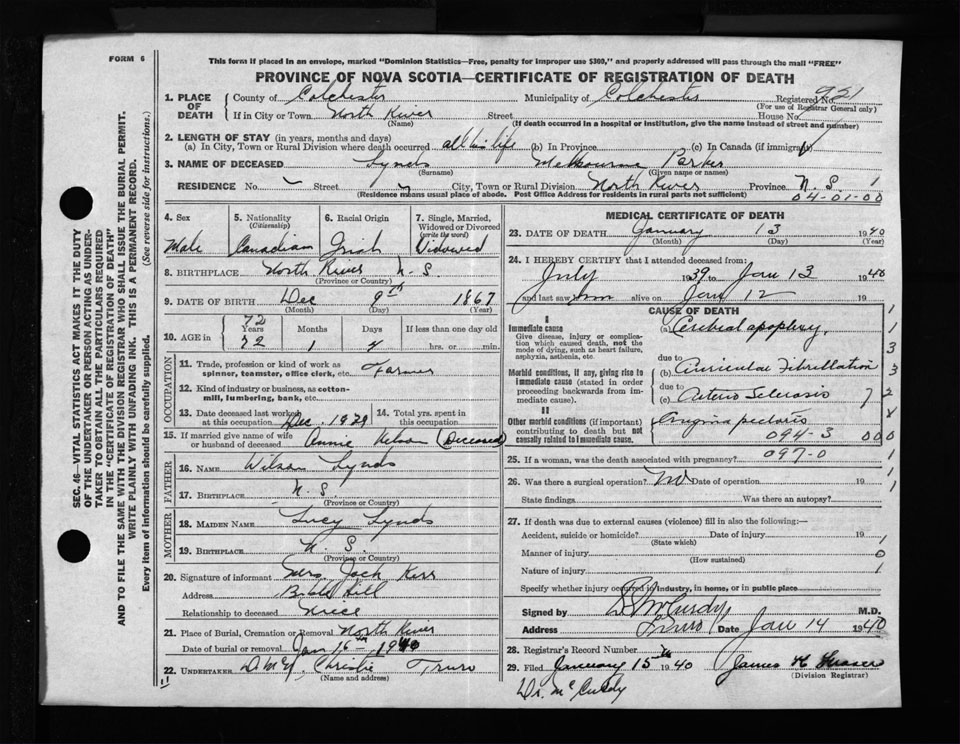 FORM 6
This form if placed in an envelope, marked "Dominion Statistics—Free, penalty for improper use $300," and properly addressed will pass through the mail "FREE"
PROVINCE OF NOVA SCOTIA—CERTIFICATE OF REGISTRATION OF DEATH
SEC. 46—VITAL STATISTICS ACT MAKES IT THE DUTY
OF THE UNDERTAKER OR PERSON ACTING AS UNDER-
TAKER TO OBTAIN ALL THE PARTICULARS REQUIRED
IN THE "CERTIFICATE OF REGISTRATION OF DEATH"
AND TO FILE THE SAME WITH THE DIVISION REGISTRAR WHO SHALL ISSUE THE BURIAL PERMIT.
WRITE PLAINLY WITH UNFADING INK. THIS IS A PERMANENT RECORD.
Every item of information should be carefully supplied. (See reverse side for instructions.)
1. PLACE OF DEATH County of Colchester Municipality of Colchester Registered No. 921
(For use of Registrar General only)
If in City or Town North River Street House No.
(Name) (If death occurred in a hospital or institution, give the name instead of street and number)
2. LENGTH OF STAY (in years, months and days)
(a) In City, Town or Rural Division where death occurred all his life (b) In Province (c) In Canada (if immigrant)
3. NAME OF DECEASED Lynds Melbourne Parker
(Surname) (Given name or names)
RESIDENCE No. Street City, Town or Rural Division North River Province N. S. 1
(Residence means usual place of abode. Post Office Address for residents in rural parts not sufficient) 04-01-00
4. Sex 5. Nationality (Citizenship) 6. Racial Origin 7. Single, Married, Widowed or Divorced (write the word)
Male Canadian Irish Widowed
8. BIRTHPLACE North River N. S.
(Province or Country)
9. DATE OF BIRTH Dec 9th 1867
(Month) (Day) (Year)
10. AGE in 72 Years Months Days If less than one day old
72 1 4 hrs. or min.
OCCUPATION
11. Trade, profession or kind of work as spinner, teamster, office clerk, etc. Farmer
12. Kind of industry or business, as cotton-mill, lumbering, bank, etc.
13. Date deceased last worked at this occupation Dec. 1929 14. Total yrs. spent in this occupation
15. If married give name of wife or husband of deceased Annie Nelson (Deceased)
FATHER
16. NAME Wilson Lynds
17. BIRTHPLACE N. S.
(Province or Country)
MOTHER
18. MAIDEN NAME Lucy Lynds
19. BIRTHPLACE N. S.
(Province or Country)
20. Signature of informant Mrs Jack Kerr
Address Bible Hill
Relationship to deceased Niece
21. Place of Burial, Cremation or Removal North River
Date of burial or removal Jan 16th 1940
22. UNDERTAKER Christie Truro
(Name and address)
MEDICAL CERTIFICATE OF DEATH
23. DATE OF DEATH January 13 1940
(Month) (Day) (Year)
24. I HEREBY CERTIFY that I attended deceased from:
July 1939 to Jan 13 1940
and last saw him alive on Jan 12 19
CAUSE OF DEATH
I
Immediate cause (a) Cerebral apoplexy.
Give disease, injury or complication which caused death, not the mode of dying, such as heart failure, asphyxia, asthenia, etc.
due to
Morbid conditions, if any, giving rise to immediate cause (stated in order proceeding backwards from immediate cause). (b) Auricular Fibrillation
due to
(c) Arterio Sclerosis
II
Other morbid conditions (if important) contributing to death but not causally related to immediate cause. Angina pectoris
094-3 000
25. If a woman, was the death associated with pregnancy? 097-0
26. Was there a surgical operation? No Date of operation 19
State findings Was there an autopsy?
27. If death was due to external causes (violence) fill in also the following:—
Accident, suicide or homicide? Date of injury 19
(State which)
Manner of injury
(How sustained)
Nature of injury
Specify whether injury occurred in industry, in home, or in public place
Signed by McCurdy M.D.
Address Truro Date Jan 14 1940
28. Registrar's Record Number
29. Filed January 15 1940 James H Fraser
(Division Registrar)
Dr. McCurdy